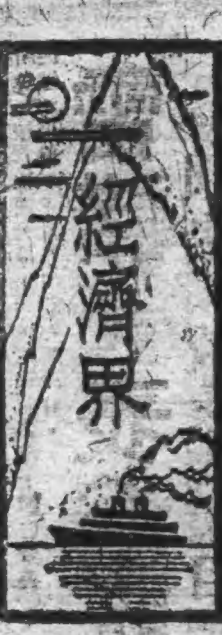 經濟界